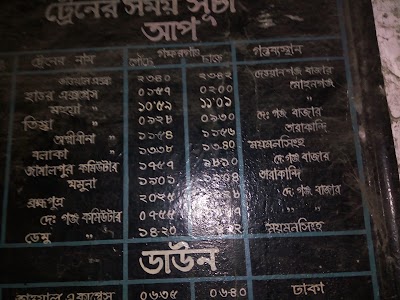 ট্রেনের সময় সূচী
আপ
ট্রেনের নাম গফরগাঁও গন্তব্যস্থান
পৌঁছে ছাড়ে
ভাওয়াল এক্সঃ ২৩৪০ ২৩৪২ দেওয়ানগঞ্জ বাজার
হাওর এক্সপ্রেস ০১৫৭ ০২০০ মোহনগঞ্জ
মহুয়া " ১০'৫৯ ১১'০১
তিস্তা " ০৯২৮ ০৯৩০ দেঃ গঞ্জ বাজার
অগ্নীবীনা " ১১৫৪ ১১৫৬ তারাকান্দি
বলাকা " ১৩৩৮ ১৩৪০ ময়মনসিংহ
জামালপুর কমিউটার ১৭৫৭ দেঃ গঞ্জ বাজার
যমুনা " ১৯০১ তারাকান্দি
ব্রহ্মপুত্র " ২০২৫ দেঃ গঞ্জ বাজার
দেঃ গঞ্জ কমিউটার ০৭৫৫ " "
ডেমু " ১৪-২০ ময়মনসিংহ
ডাউন
ভাওয়াল এক্সপ্রেস ০৬৩৫ ০৬৪০ ঢাকা